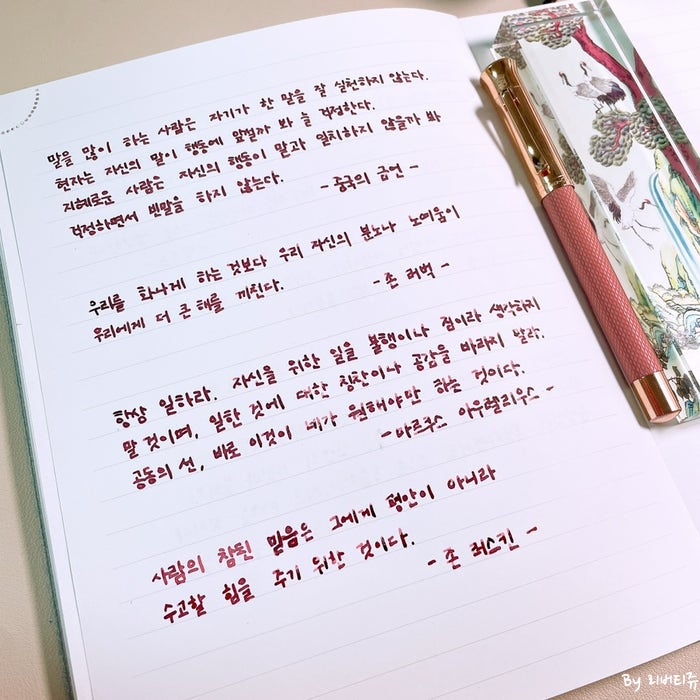 말을 많이 하는 사람은 자기가 한 말을 잘 실천하지 않는다.
현자는 자신의 말이 행동에 앞설까 봐 늘 걱정한다.
지혜로운 사람은 자신의 행동이 말과 일치하지 않을까 봐
걱정하면서 빈말을 하지 않는다.
- 중국의 금언 -
우리를 화나게 하는 것보다 우리 자신의 분노나 노여움이
우리에게 더 큰 해를 끼친다.
- 존 러벅 -
항상 일하라. 자신을 위한 일을 불행이나 짐이라 생각하지
말 것이며, 일한 것에 대한 칭찬이나 공감을 바라지 말라.
공동의 선, 바로 이것이 네가 원해야만 하는 것이다.
- 마르쿠스 아우렐리우스 -
사람의 참된 믿음은 그에게 평안이 아니라
수고할 힘을 주기 위한 것이다.
- 존 러스킨 -
By 리버티쥬